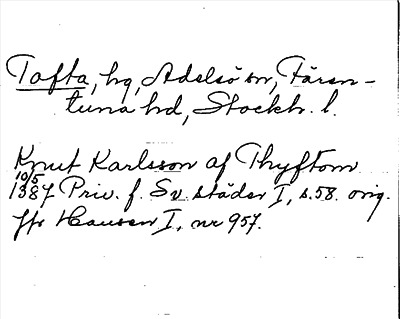 Tofta, hg, Adelsö sn, Fären-
tuna hd, Stockh. l.
Knut Karlsson af Thyftom
10/5
1387 Priv. f. Sv. städer I, s. 58. orig.
jfr Hausen I, nr 957.